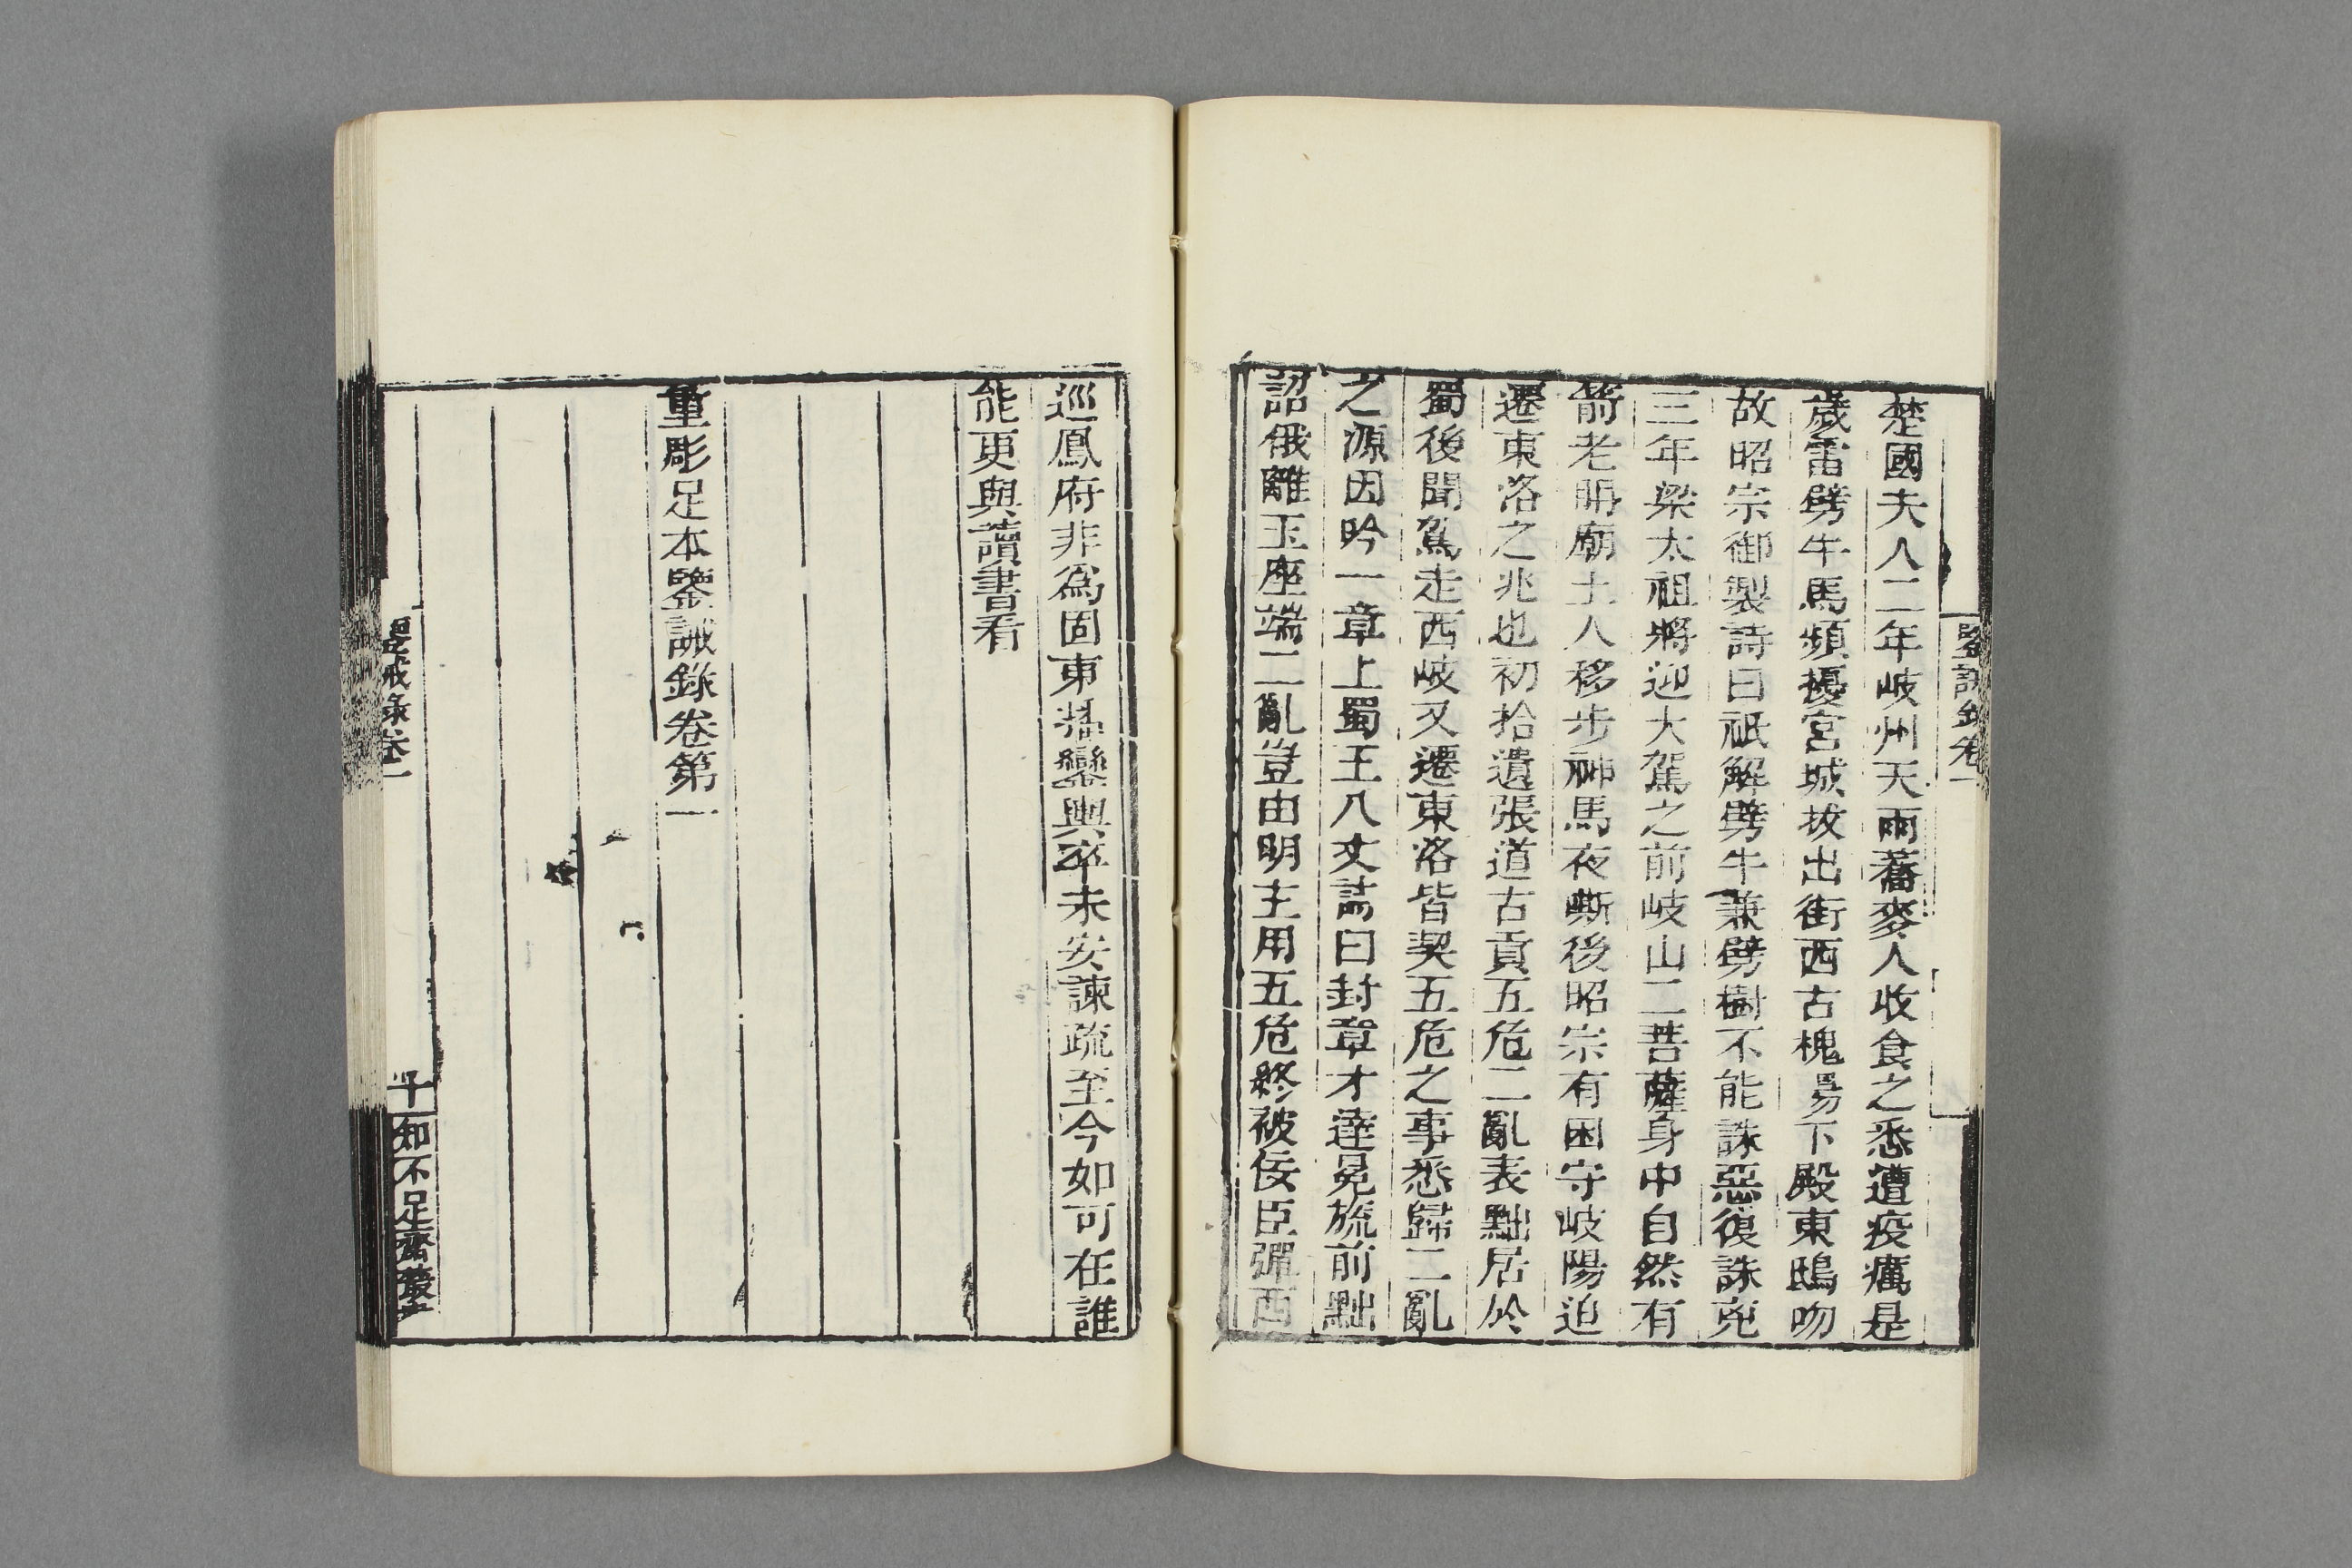 鑒誡錄卷一
楚國夫人二年岐州天雨蕎麥人收食之悉遭疫癘是
歲雷劈牛馬頻擾宮城拔出街西古槐易下殿東鴟吻
故昭宗御製詩曰祇解劈牛兼劈樹不能誅惡復誅兇
三年梁太祖將迎大駕之前岐山二菩薩身中自然有
箭老明廟土人移步神馬夜嘶後昭宗有困守岐陽迫
遷東洛之兆也初拾遺張道古貢五危二亂表黜居於
蜀後聞駕走西岐又遷東洛皆契五危之事悉歸二亂
之源因吟一章上蜀王八丈詩曰封章才達冕旒前黜
詔俄離玉座端二亂豈由明主用五危終被佞臣彈西
巡鳳府非爲固東播鑾輿卒未安諫疏至今如可在誰
能更與讀書看
重彫足本鑒誡錄卷第一
鑒誡錄卷一
十
知不足齋叢書